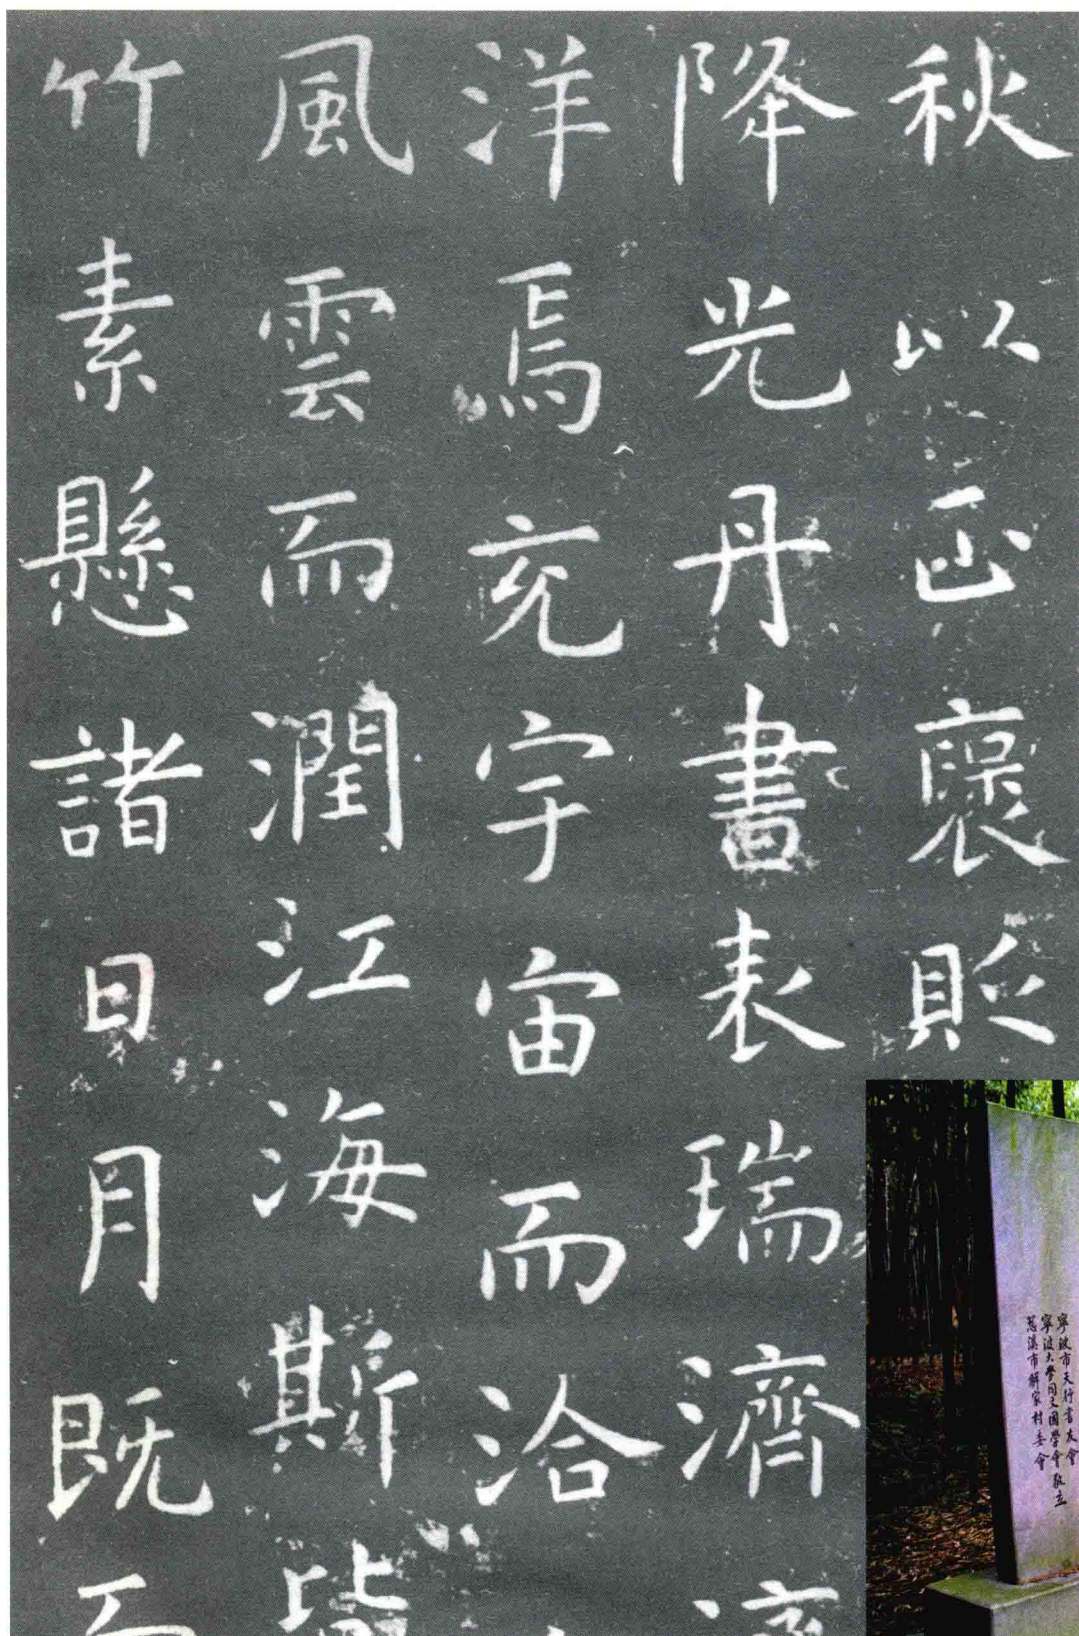 秋以正褒貶
降光丹書表瑞濟
洋焉充宇宙而洽
風雲而潤江海斯皆
竹素懸諸日月既
寧波市天行書友會
寧波大學同文國學會敬立
慈溪市解家村委會